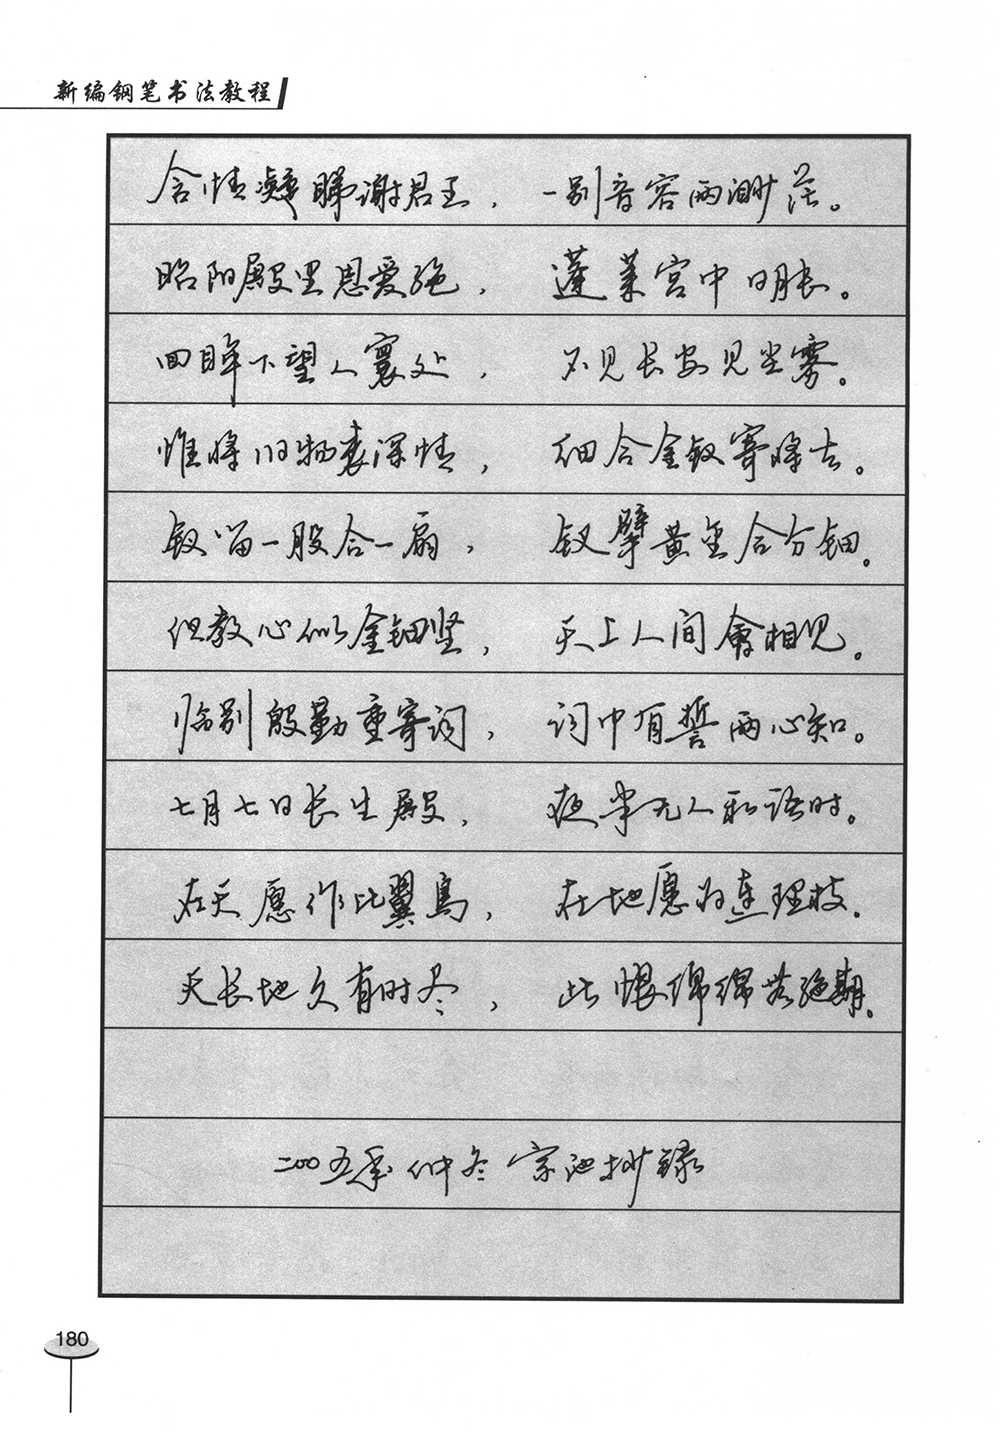 新编钢笔书法教程
含情凝睇谢君王，一别音容两渺茫。
昭阳殿里恩爱绝，蓬莱宫中日月长。
回眸下望人寰处，不见长安见尘雾。
惟将旧物表深情，钿合金钗寄将去。
钗留一股合一扇，钗擘黄金合分钿。
但教心似金钿坚，天上人间會相见。
临别殷勤重寄词，词中有誓两心知。
七月七日长生殿，夜半无人私语时。
在天愿作比翼鸟，在地愿为连理枝。
天长地久有时尽，此恨绵绵无绝期。
二〇〇五年仲冬宗池抄录
180